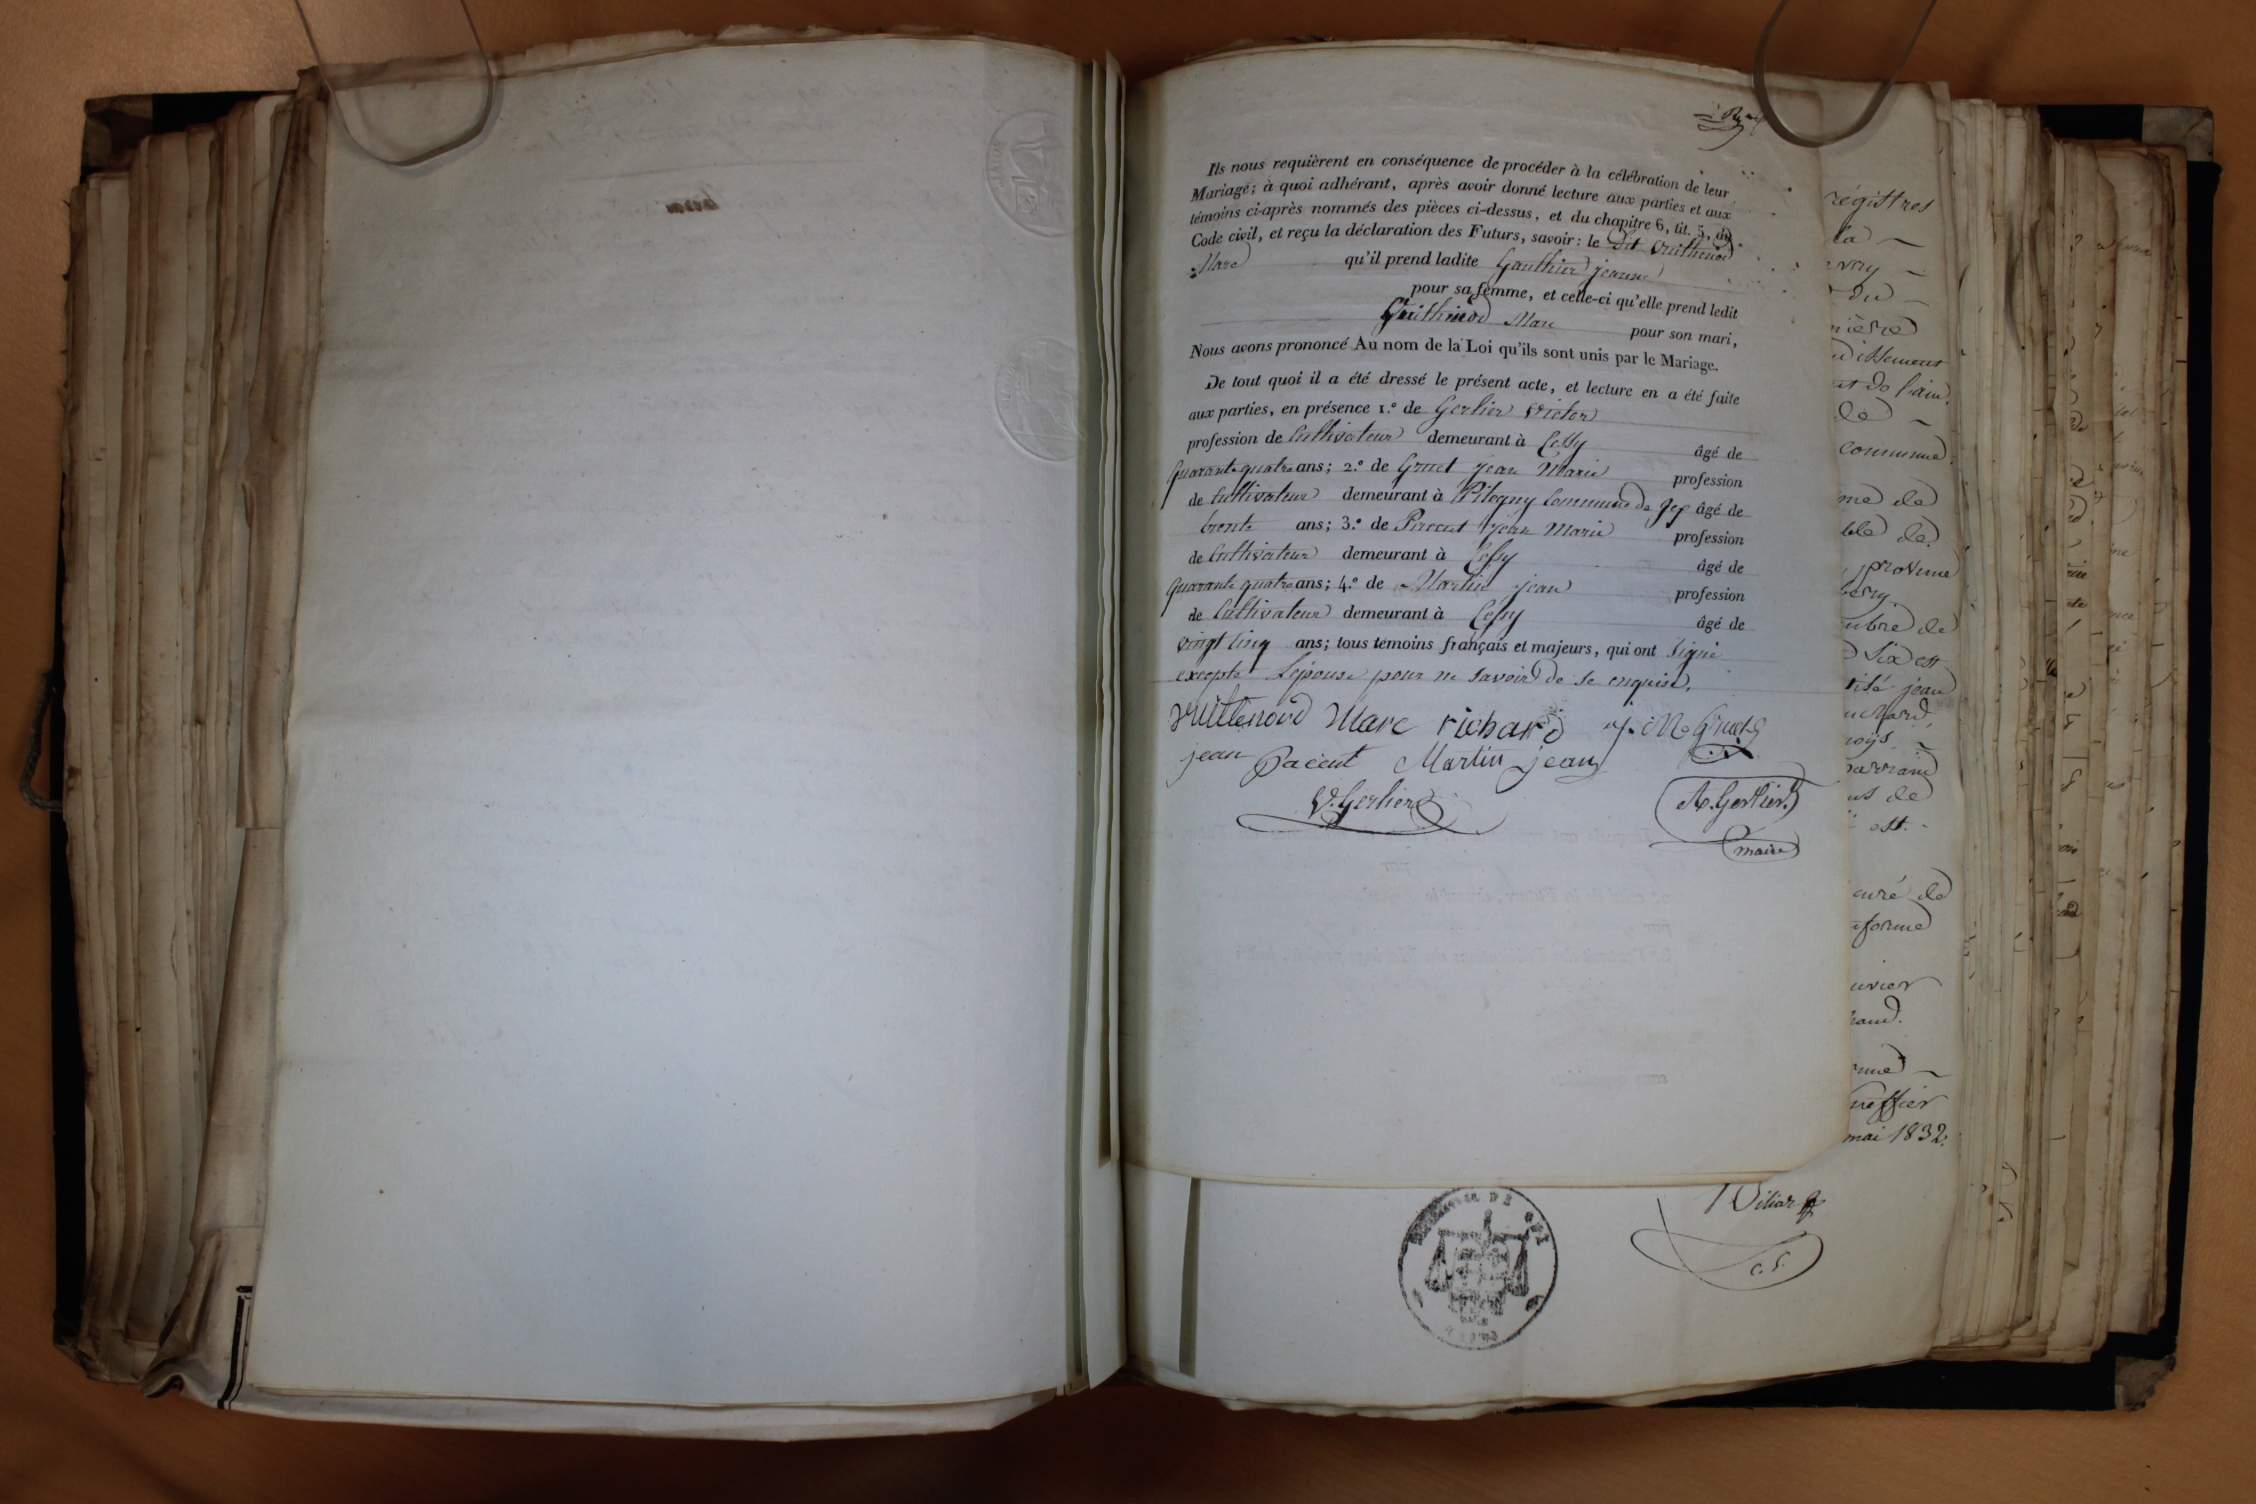 Ils nous requièrent en conséquence de procéder à la célébration de leur
Mariage; à quoi adhérant, après avoir donné lecture aux parties et aux
témoins ci-après nommés des pièces ci-dessus, et du chapitre 6, tit. 5, du
Code civil, et reçu la déclaration des Futurs, savoir: le dit Vuithenod
Marc qu'il prend ladite Gauthier jeanne
pour sa femme, et celle-ci qu'elle prend ledit
Vuithenod Marc pour son mari,
Nous avons prononcé Au nom de la Loi qu'ils sont unis par le Mariage.
De tout quoi il a été dressé le présent acte, et lecture en a été faite
aux parties, en présence 1.° de Gerlier Victor
profession de Cultivateur demeurant à Cessy âgé de
quarante quatre ans; 2.° de Gruet jean Marie profession
de Cultivateur demeurant à Pitegny commune de Gex âgé de
trente ans; 3.° de Pacout jean Marie profession
de Cultivateur demeurant à Cessy âgé de
quarante quatre ans; 4.° de Martin jean profession
de Cultivateur demeurant à Cessy âgé de
vingt cinq ans; tous témoins français et majeurs, qui ont signé
excepté Lépouse pour ne savoir de ce enquise.
vuittenord Marc richard j. M. Gruet
jean Pacout Martin jean
V. Gerlier A. Gerlier
maire
régistres
la
du
de l'ain.
de
commune
me de
ble de
de
six est
jean
de
est.
curé de
forme
greffier
mai 1832.